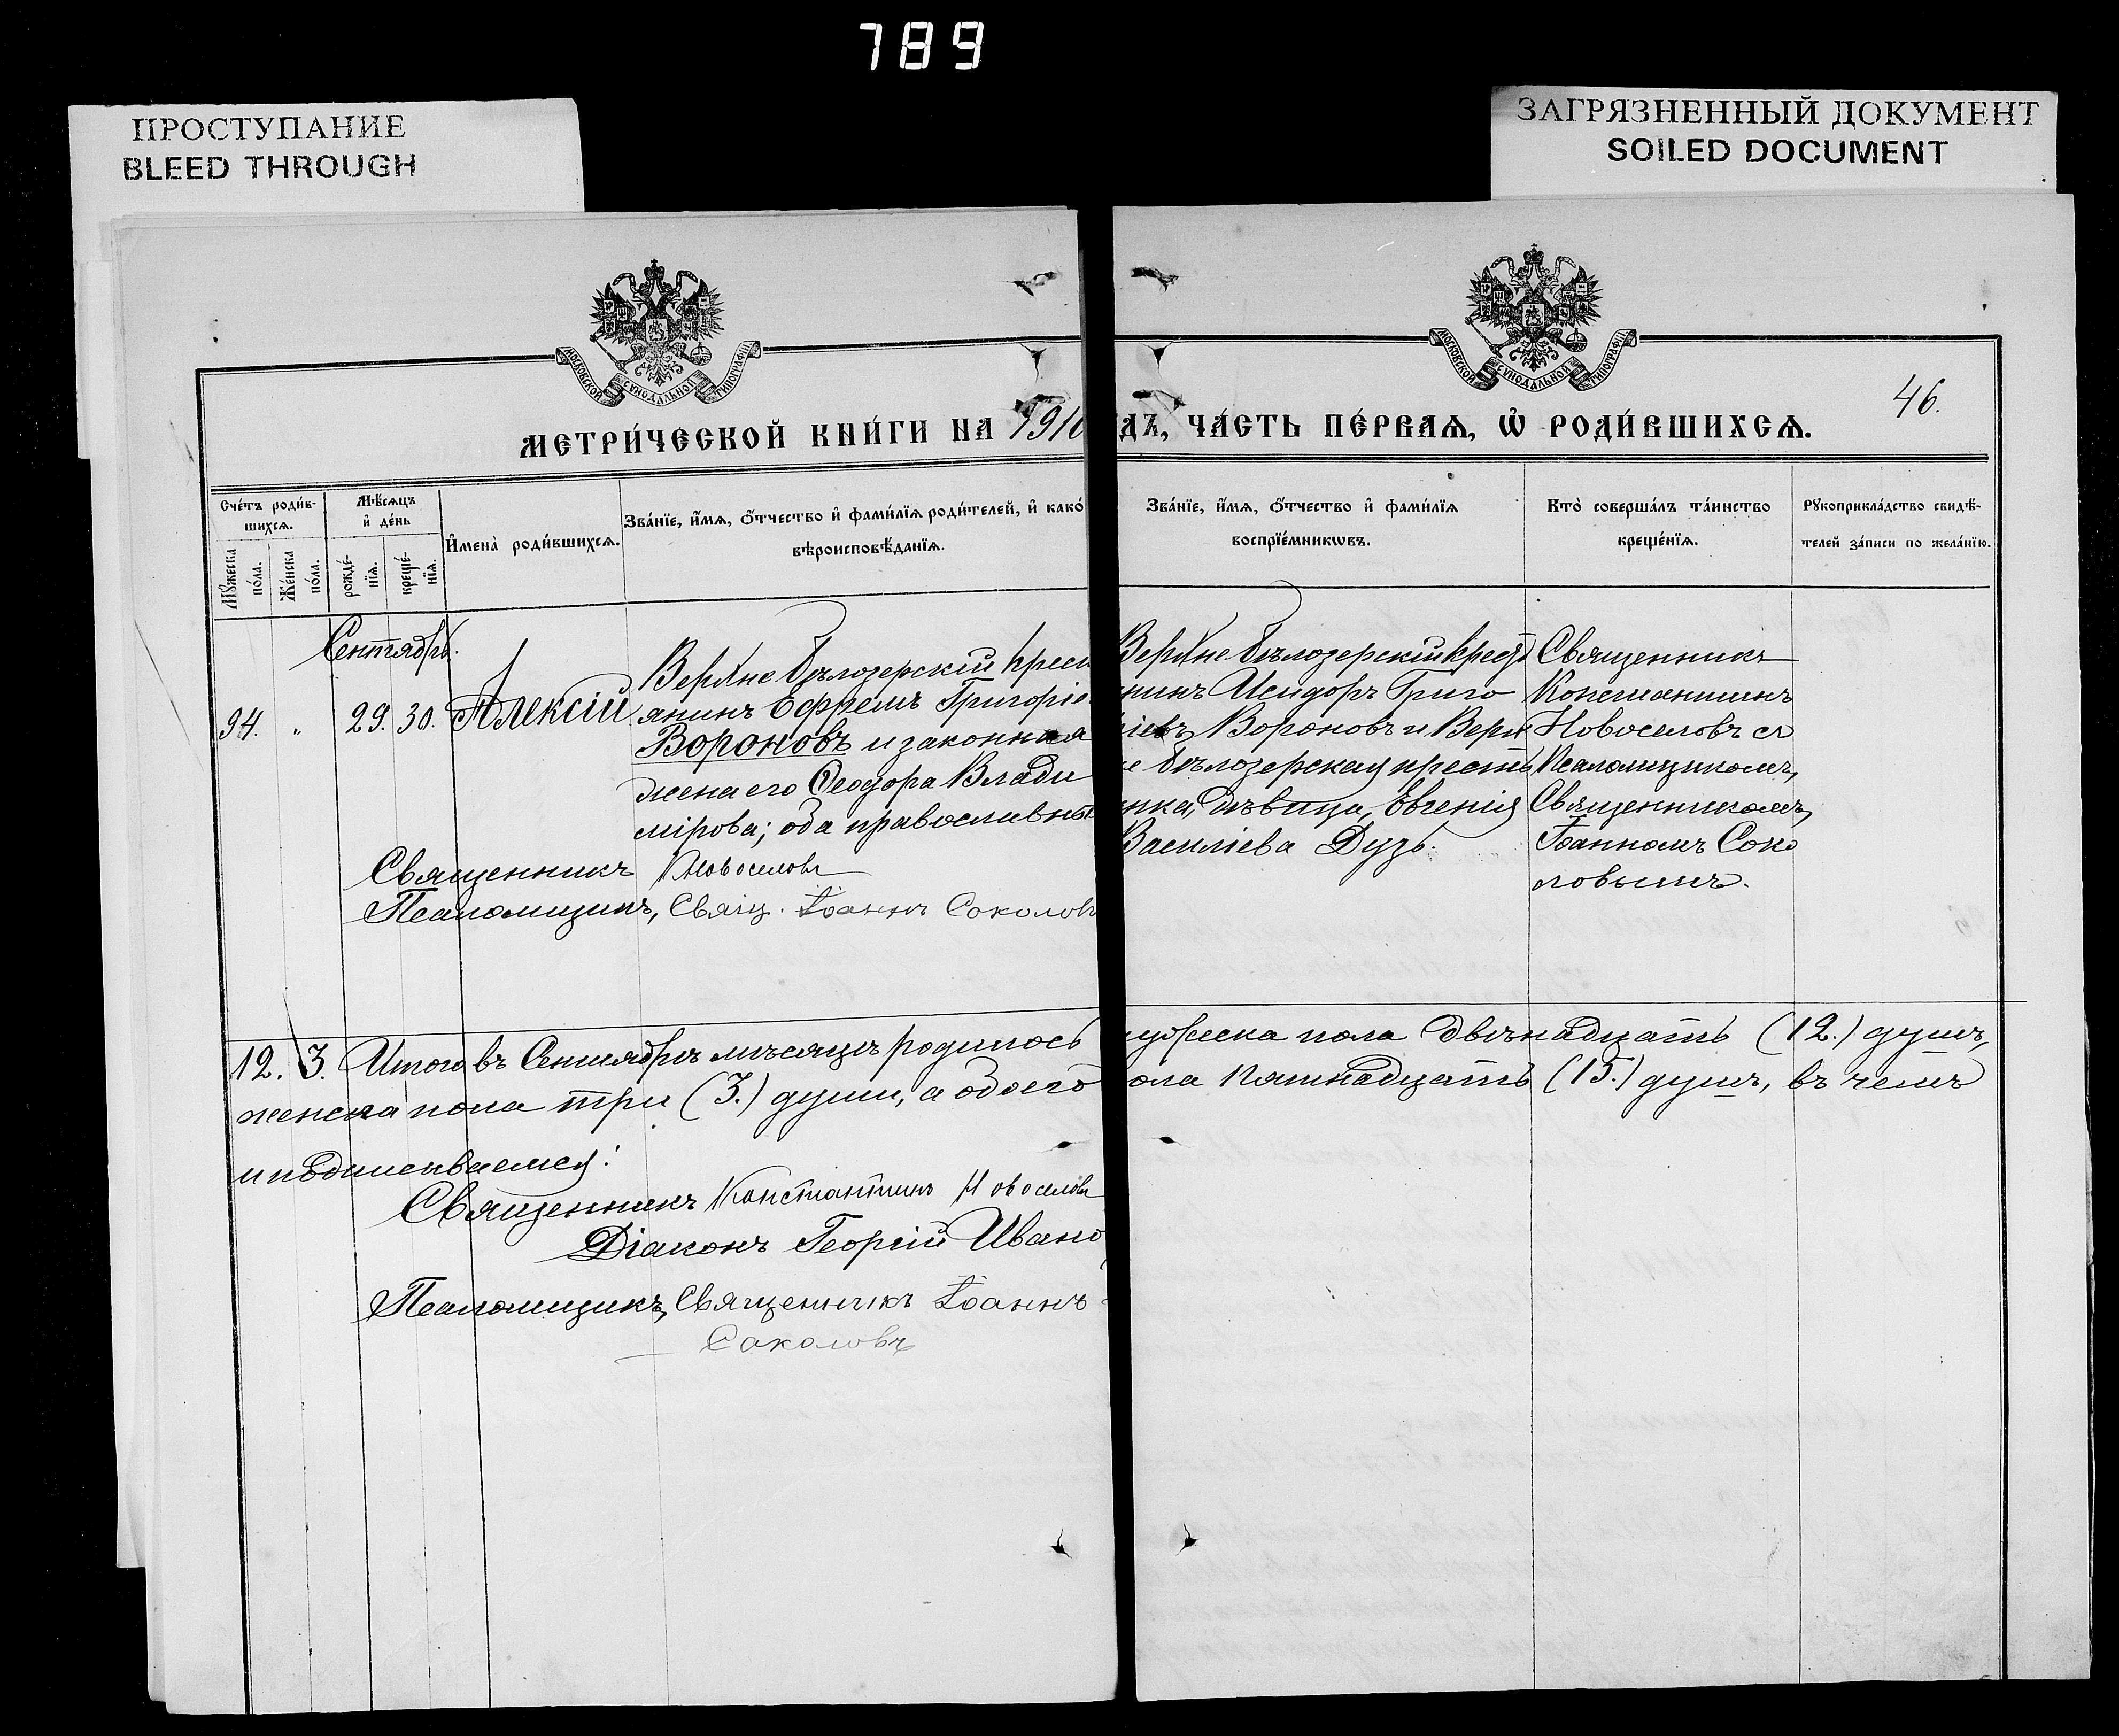 789
ПРОСТУПАНИЕ
BLEED THROUGH
ЗАГРЯЗНЕННЫЙ ДОКУМЕНТ
SOILED DOCUMENT
МОСКОВСКОЙ СѴНОДАЛЬНОЙ ТИПОГРАФІИ
МОСКОВСКОЙ СѴНОДАЛЬНОЙ ТИПОГРАФІИ
46.
МЕТРИ́ЧЕСКОЙ КНИ́ГИ НА 1910
ДЪ, ЧА́СТЬ ПЕ́РВАѦ, Ѡ҆ РОДИ́ВШИХСѦ.
Сче́тъ роди́в-
шихсѧ.
Мꙋ́жеска по́ла.
Же́нска по́ла.
Мѣ́сѧцъ
и҆ де́нь
рожде́-
нїѧ.
креще́-
нїѧ.
И҆мена̀ роди́вшихсѧ.
Зва́нїе, и҆́мѧ, ѻ҆́тчество и҆ фами́лїѧ роди́телей, и҆ како́
вѣроисповѣ́данїѧ.
Зва́нїе, и҆́мѧ, ѻ҆́тчество и҆ фами́лїѧ
воспрїе́мникѡвъ.
Кто̀ соверша́лъ та́инство
креще́нїѧ.
Рꙋкоприкла́дство свидѣ́-
телей за́писи по жела́нїю.
Сентябрь.
94. " 29. 30. Алексій
Верхне бѣлозерскій крест
янинъ Ефремъ Григоріе
Вороновъ и законная
жена его Ѳеодора Влади
мірова; оба православны
Верхне бѣлозерскій крест
нинъ Исидоръ Григо
ріевъ Вороновъ и Верх
не бѣлозерская крестья
нка, дѣвица, Евгенія
Василіева Дузь.
Священникъ
Константинъ
Новоселовъ съ
Псаломщикомъ,
Священникомъ
Іоанномъ Соко
ловымъ.
Священникъ К Новоселовъ
Псаломщикъ, Свящ. Іоаннъ Соколовъ
12. 3. Итого въ Сентябрѣ мѣсяцѣ родилось
мужеска пола двѣнадцать (12.) душъ,
женска пола три (3.) души, а обоего
пола пятнадцать (15.) душъ, въ чемъ
и подписываемся:
Священникъ Константинъ Новоселовъ
Діаконъ Георгій Ивано
Псаломщикъ, Священникъ Іоаннъ
Соколовъ